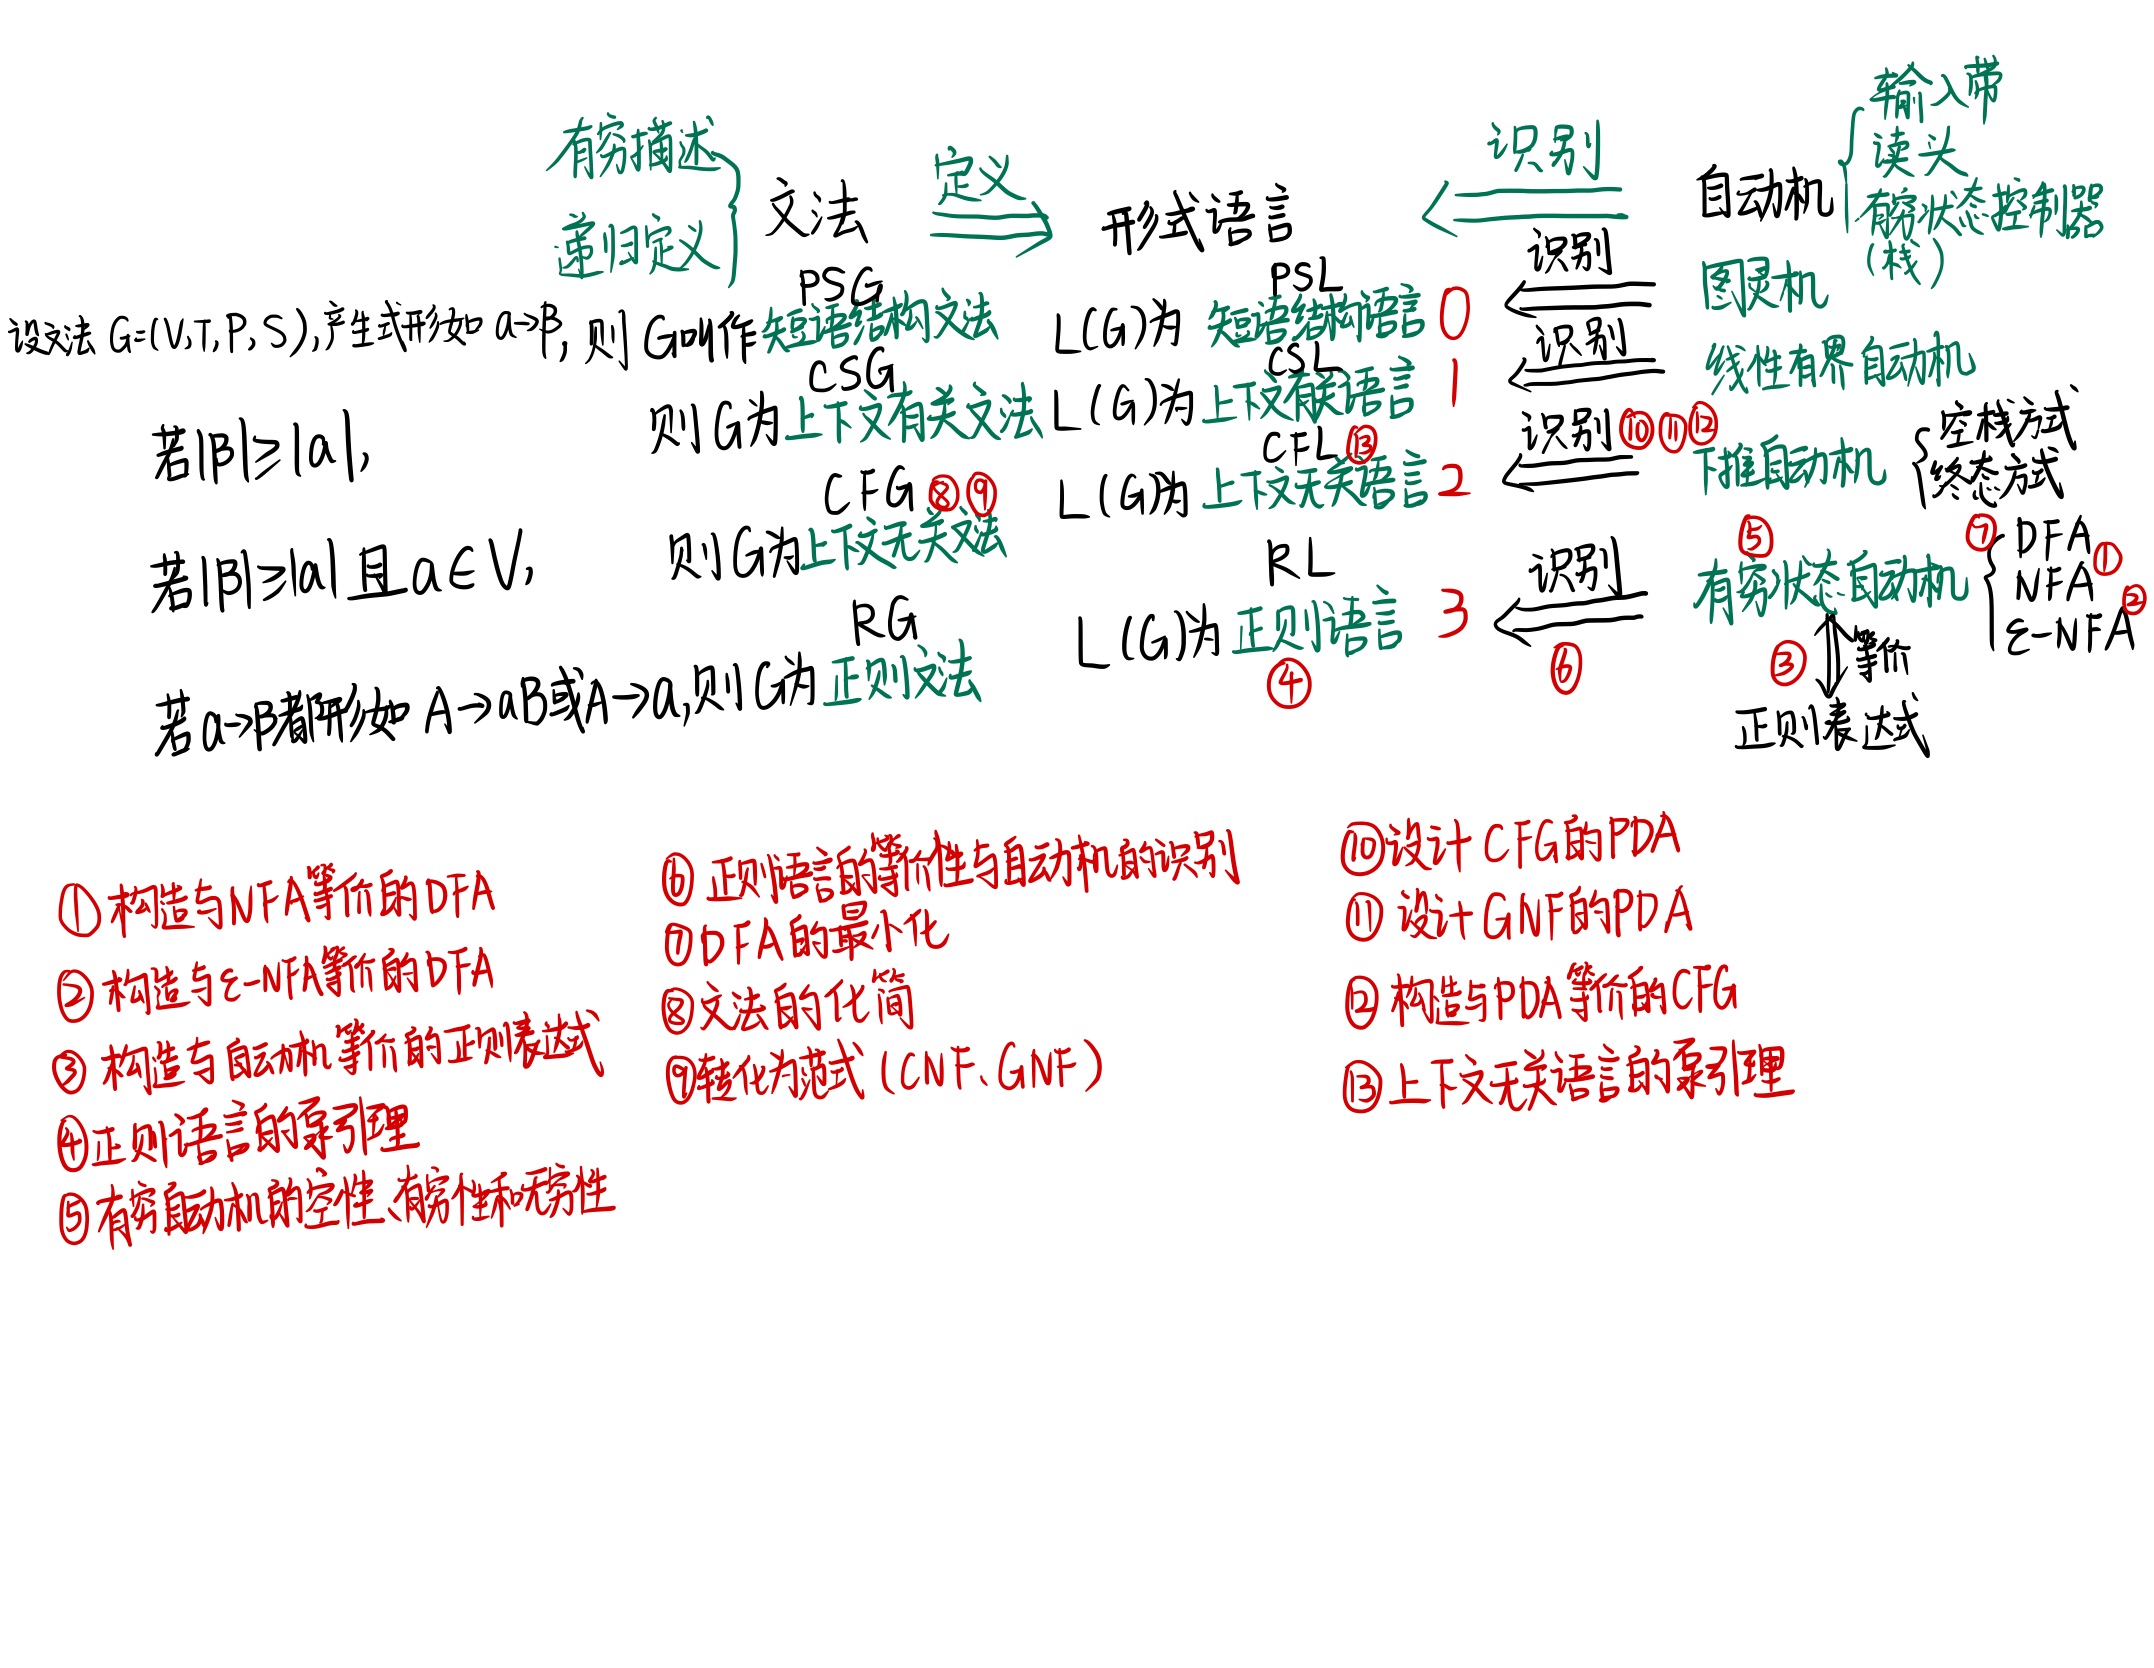 有穷描述
递归定义
文法
定义
形式语言
识别
自动机
输入带
读头
有穷状态控制器
(栈)
PSG
PSL
设文法 G=(V,T,P,S),产生式形如 a→β, 则 G叫作短语结构文法
L(G)为 短语结构语言 0
识别
图灵机
CSG
CSL
若|β|≥|a|,
则G为上下文有关文法
L(G)为上下文有关语言 1
识别
线性有界自动机
CFG ⑧ ⑨
CFL ⑬
若|β|≥|a|且a∈V,
则G为上下文无关文法
L(G)为上下文无关语言 2
识别 ⑩ ⑪ ⑫
下推自动机
空栈方式
终态方式
RG
RL
若a→β都形如 A→aB或A→a,则G为 正则文法
L(G)为 正则语言 3
④
识别
⑥
⑤
有穷状态自动机
⑦ DFA
①
NFA
②
ε-NFA
③ 等价
正则表达式
①构造与NFA等价的DFA
②构造与ε-NFA等价的DFA
③构造与自动机等价的正则表达式
④正则语言的泵引理
⑤有穷自动机的空性、有穷性和无穷性
⑥正则语言的等价性与自动机的识别
⑦DFA的最小化
⑧文法的化简
⑨转化为范式(CNF、GNF)
⑩设计CFG的PDA
⑪设计GNF的PDA
⑫构造与PDA等价的CFG
⑬上下文无关语言的泵引理